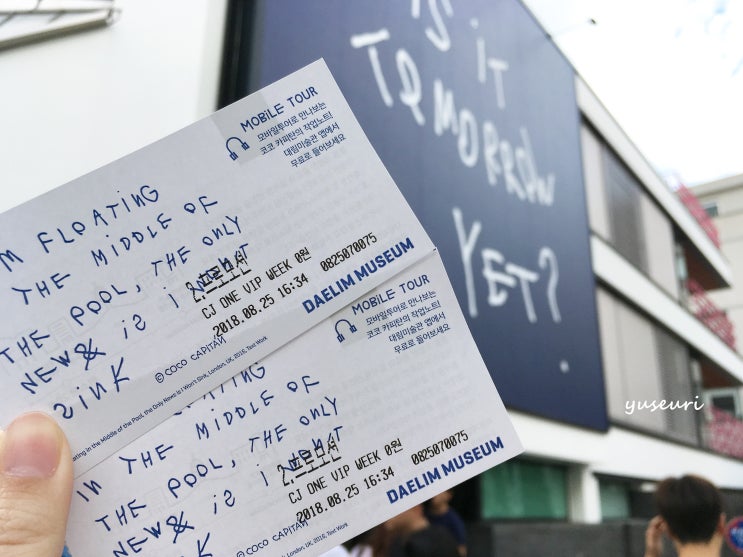 iS iT
TOMORROW
YET?
MOBiLE TOUR
모바일투어로 만나보는
코코 카피탄의 작업노트!
대림미술관 앱에서
무료로 들어보세요
M FLOATING
THE MIDDLE OF
THE POOL, THE ONLY
NEWS iS i WON'T
SINK
CJ ONE VIP WEEK 0원
2018.08.25 16:34 0825070075
DAELIM MUSEUM
© COCO CAPITÁN
ating in the Middle of the Pool, the Only News is I Won't Sink, London, UK, 2016, Text Work
MOBiLE TOUR
모바일투어로 만나보는
코코 카피탄의 작업노트!
대림미술관 앱에서
무료로 들어보세요
FLOATING
IN THE MIDDLE OF
THE POOL, THE ONLY
NEWS iS i WON'T
SINK
CJ ONE VIP WEEK 0원
2018.08.25 16:34 0825070075
DAELIM MUSEUM
© COCO CAPITÁN
Won't Sink, London, UK, 2016, Text Work
yuseuri